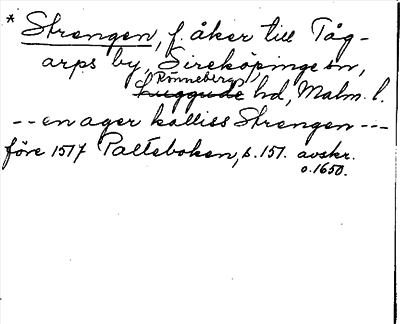 * Strengen, f. åker till Tåg-
arps by, Sireköpinge sn,
Rönnebergs
Luggude hd, Malm. l.
-- en ager kalliss Strengen ---
före 1517 Palteboken, s. 151. avskr.
o. 1650.